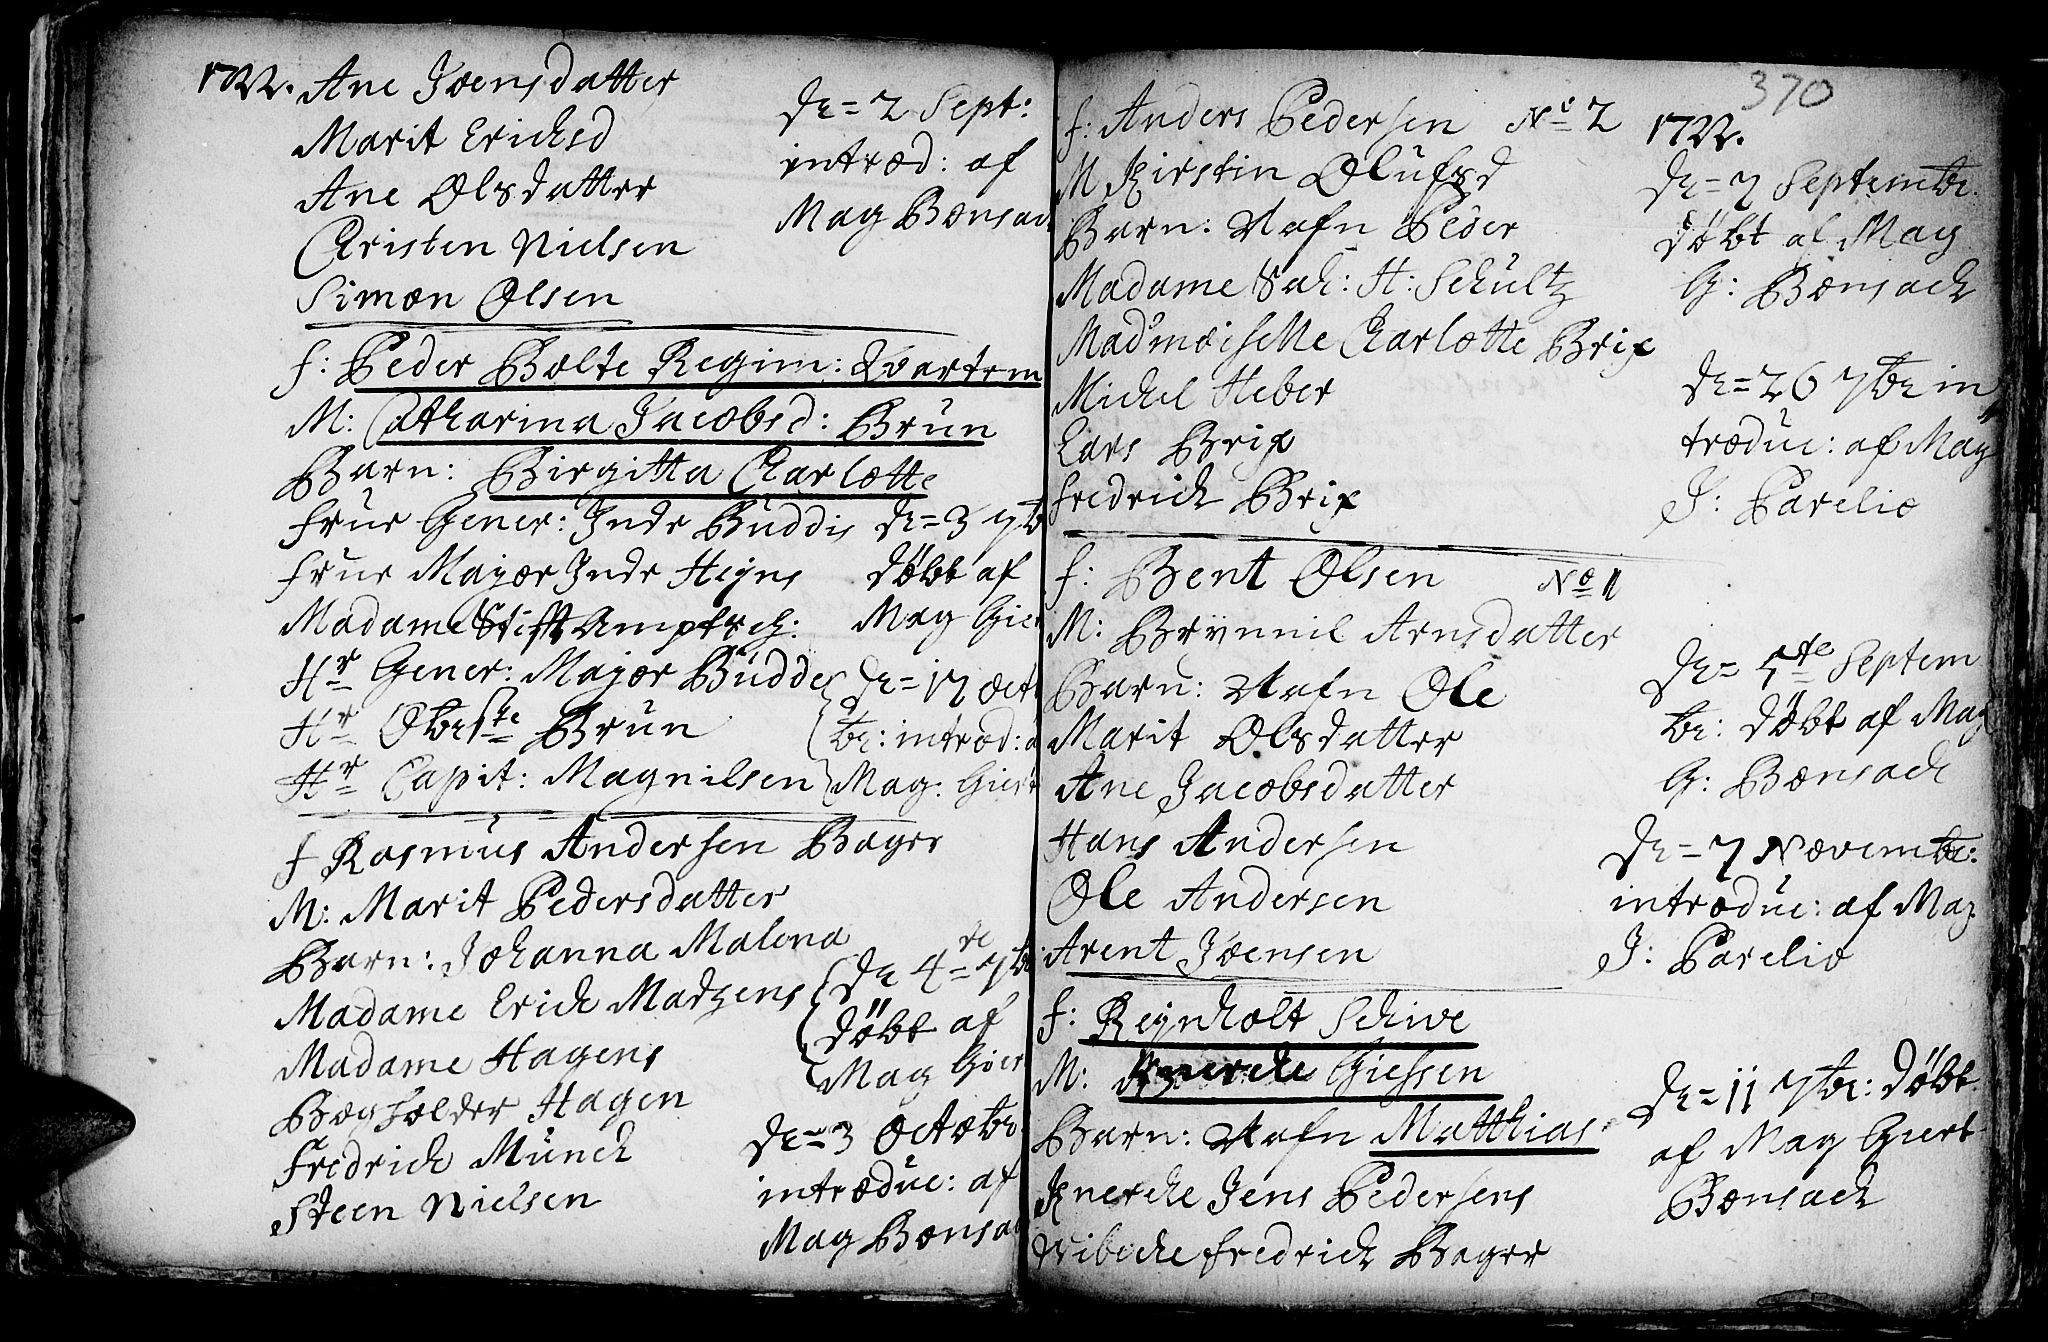 1722. Ane Joensdatter
Marit Ericksd
Ane Olsdatter
Christen Nielsen
Simon Olsen
de= 2 Sept:
introd: af
Mag Bonsack
f: Peder Bolte Regim: Qvarterm
M: Catharina Jacobsd: Brun
Barn: Birgitta Charlotte
Frue Gener: Inde Buddis
Frue Major Inde Heyns
Madame Stift Amptsch:
Hr Gener: Major Budde
Hr Obriste Brun
Hr Capit: Magnilsen
de= 3 7b
døbt af
Mag Gier
de= 17 octo
br: introd: a
Mag: Giert
f Rasmus Andersen Bager
M: Marit Pedersdatter
Barn: Johanna Malena
Madame Erich Madzens
Madame Hagens
Bogholder Hagen
Fredrich Munch
Steen Nielsen
de 4de 7b
døbt af
Mag Gier
de= 3 Octobr.
introduc: af
Mag Bonsac
370
1722.
f: Anders Pedersen No 2
M Kirstin Olufsd
Barn: Nafn Peder
Madame Sal: H: Schultz
Madmoiselle Charlotte Brix
Michel Heber
Lars Brix
Fredrich Brix
de= 7 Septembr.
døbt af Mag
G: Bonsach
de= 26 7br in
troduc: af Mag
J: Parelio
f: Bent Olsen No 1
M: Brynnil Arnsdatter
Barn: Nafn Ole
Marit Olsdatter
Ane Jacobsdatter
Hans Andersen
Ole Andersen
Arent Joensen
de= 5te Septem
br: døbt af Mag
G: Bonsach
de= 7 Novembr:
introduc: af Mag
J: Parelio
f: Reynholt Schive
M: Giessen
Barn: Nafn Matthias
Jens Pedersens
Wibeche Fredrich Bager
de= 11 7br: døbt
af Mag Giert
Bonsach